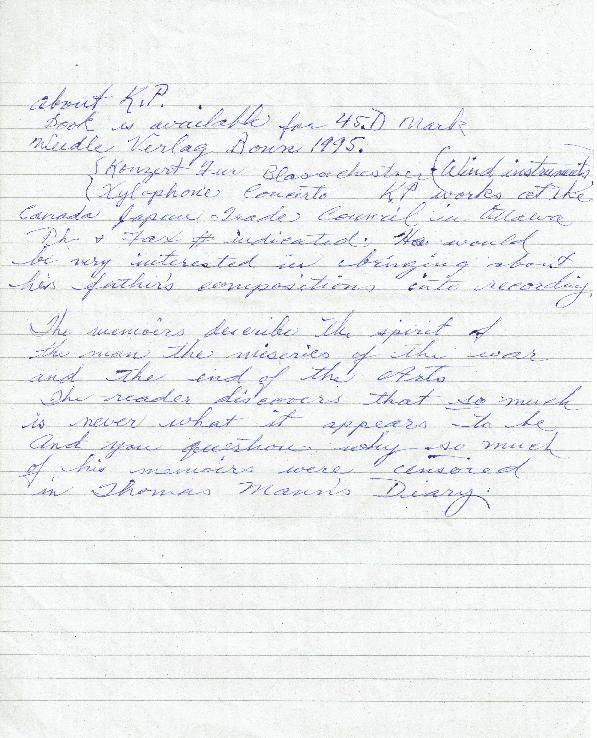 about K.P.
Book is available for 45.D Mark
Verlag Bonn 1995.
{Konzert Fur Blasorchester {Wind instruments
{Xylophone Concerto KP works at the
Canada Japan Trade Council in Ottawa
Ph & Fax # indicated: He would
be very interested in bringing about
his father's compositions into recording
The memoirs describe the spirit of
the man the miseries of the war
and the end of the Arts
The reader discovers that so much
is never what it appears to be
And you question why so much
of his memoirs were censored
in Thomas Mann's Diary.